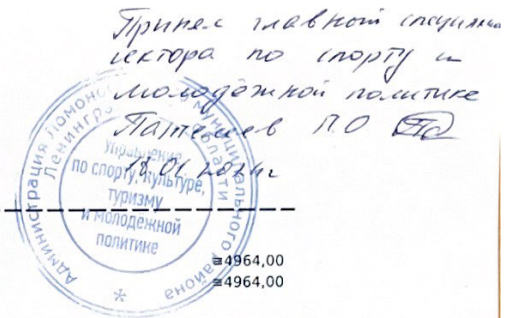 Принял главный специалист
сектора по спорту и
молодёжной политике
П.О
Администрация Ломоносовского муниципального района
Ленинградской области
Управление
по спорту, культуре,
туризму
и молодежной
политике
≅4964,00
≅4964,00